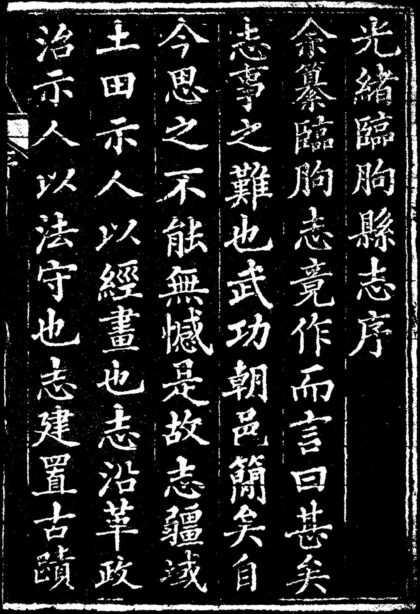 光緒臨朐縣志序
余纂臨朐志竟作而言曰甚矣
志事之難也武功朝邑簡矣自
今思之不能無憾是故志疆域
土田示人以經畫也志沿革政
治示人以法守也志建置古蹟